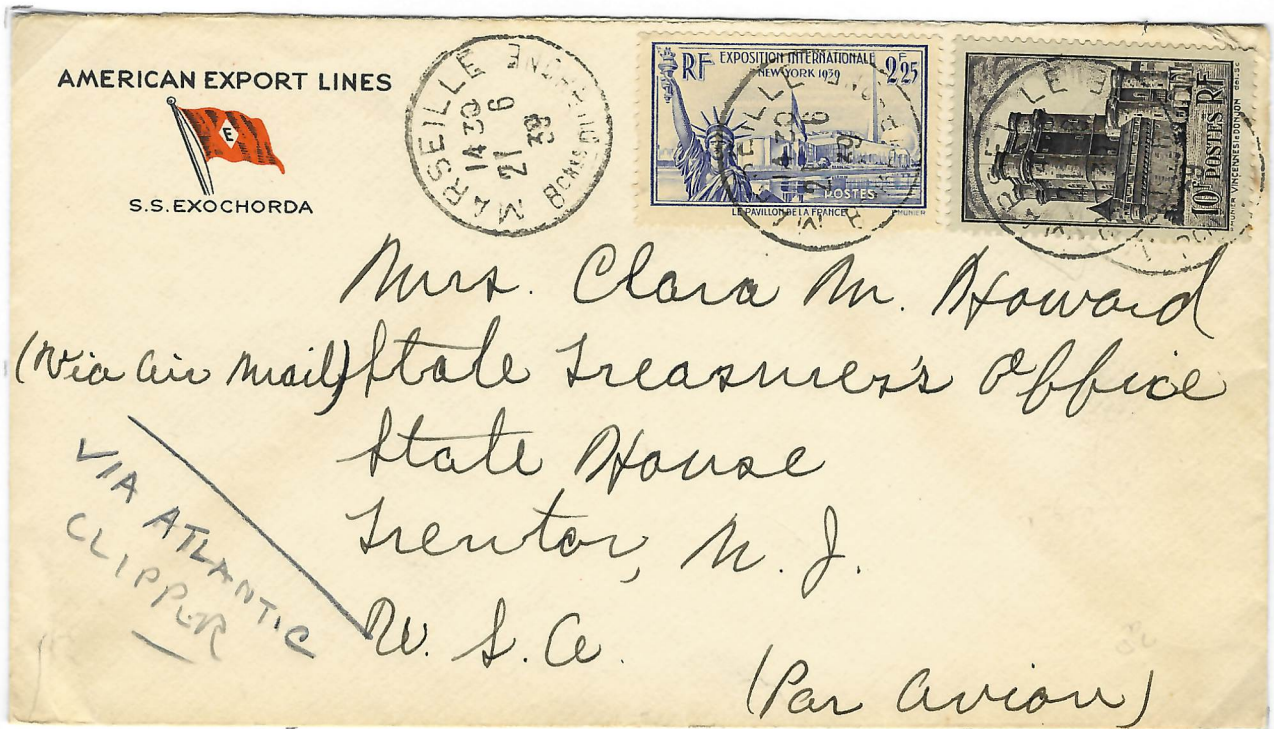 AMERICAN EXPORT LINES
E
S.S. EXOCHORDA
MARSEILLE
14 30
21 6
39
Bches DU RHONE
RF EXPOSITION INTERNATIONALE 2F25
NEW-YORK 1939
POSTES
LE PAVILLON DE LA FRANCE MUNIER
10F POSTES RF
VINCENNES: le DONJON
Mrs. Clara M. Howard
(Via Air Mail) State Treasurer's Office
State House
Trenton, N. J.
U. S. A.
VIA ATLANTIC
CLIPPER
(Par Avion)